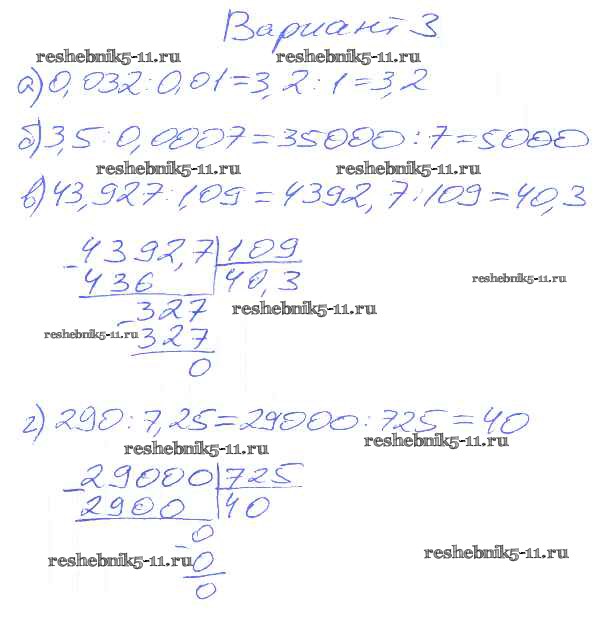 Вариант 3
reshebnik5-11.ru reshebnik5-11.ru
а) 0,032:0,01=3,2:1=3,2
б) 3,5:0,0007=35000:7=5000
reshebnik5-11.ru reshebnik5-11.ru
в) 43,927:1,09=4392,7:109=40,3
-4392,7 109
436 40,3
reshebnik5-11.ru
-327
reshebnik5-11.ru
reshebnik5-11.ru
327
0
г) 290:7,25=29000:725=40
reshebnik5-11.ru reshebnik5-11.ru
-29000 725
2900 40
0
reshebnik5-11.ru reshebnik5-11.ru
-0
0